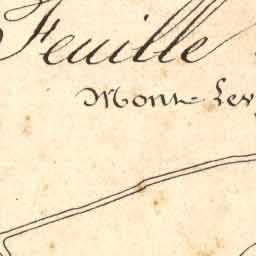 Feuille
Mont-Ley